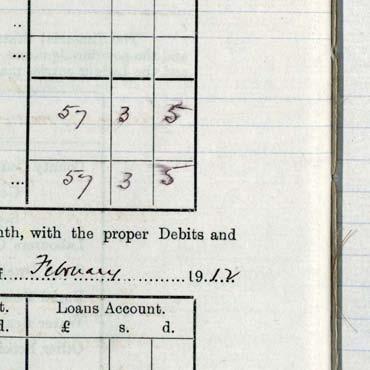 ..
...
57 3 5
... 57 3 5
nth, with the proper Debits and
f........February...............1912
t. Loans Account.
d. £ s. d.